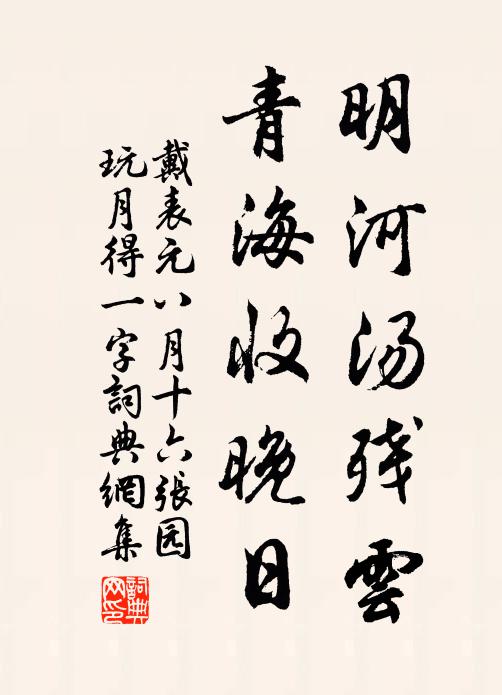 明河汤残雲
青海收晚日
戴表元八月十六張园
玩月得一字詞典網集
詞典網印